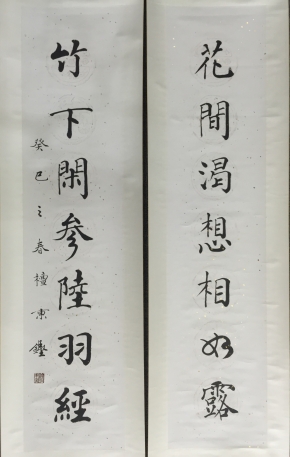 花間渴想相如露
竹下閑參陸羽經
癸巳之春檀東鏗